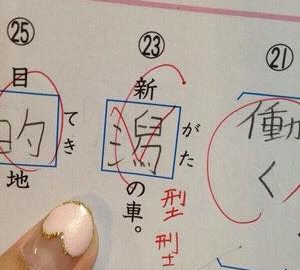 ㉑
働く
㉓
新潟の車。
がた
型
型
㉕
目的地
てき